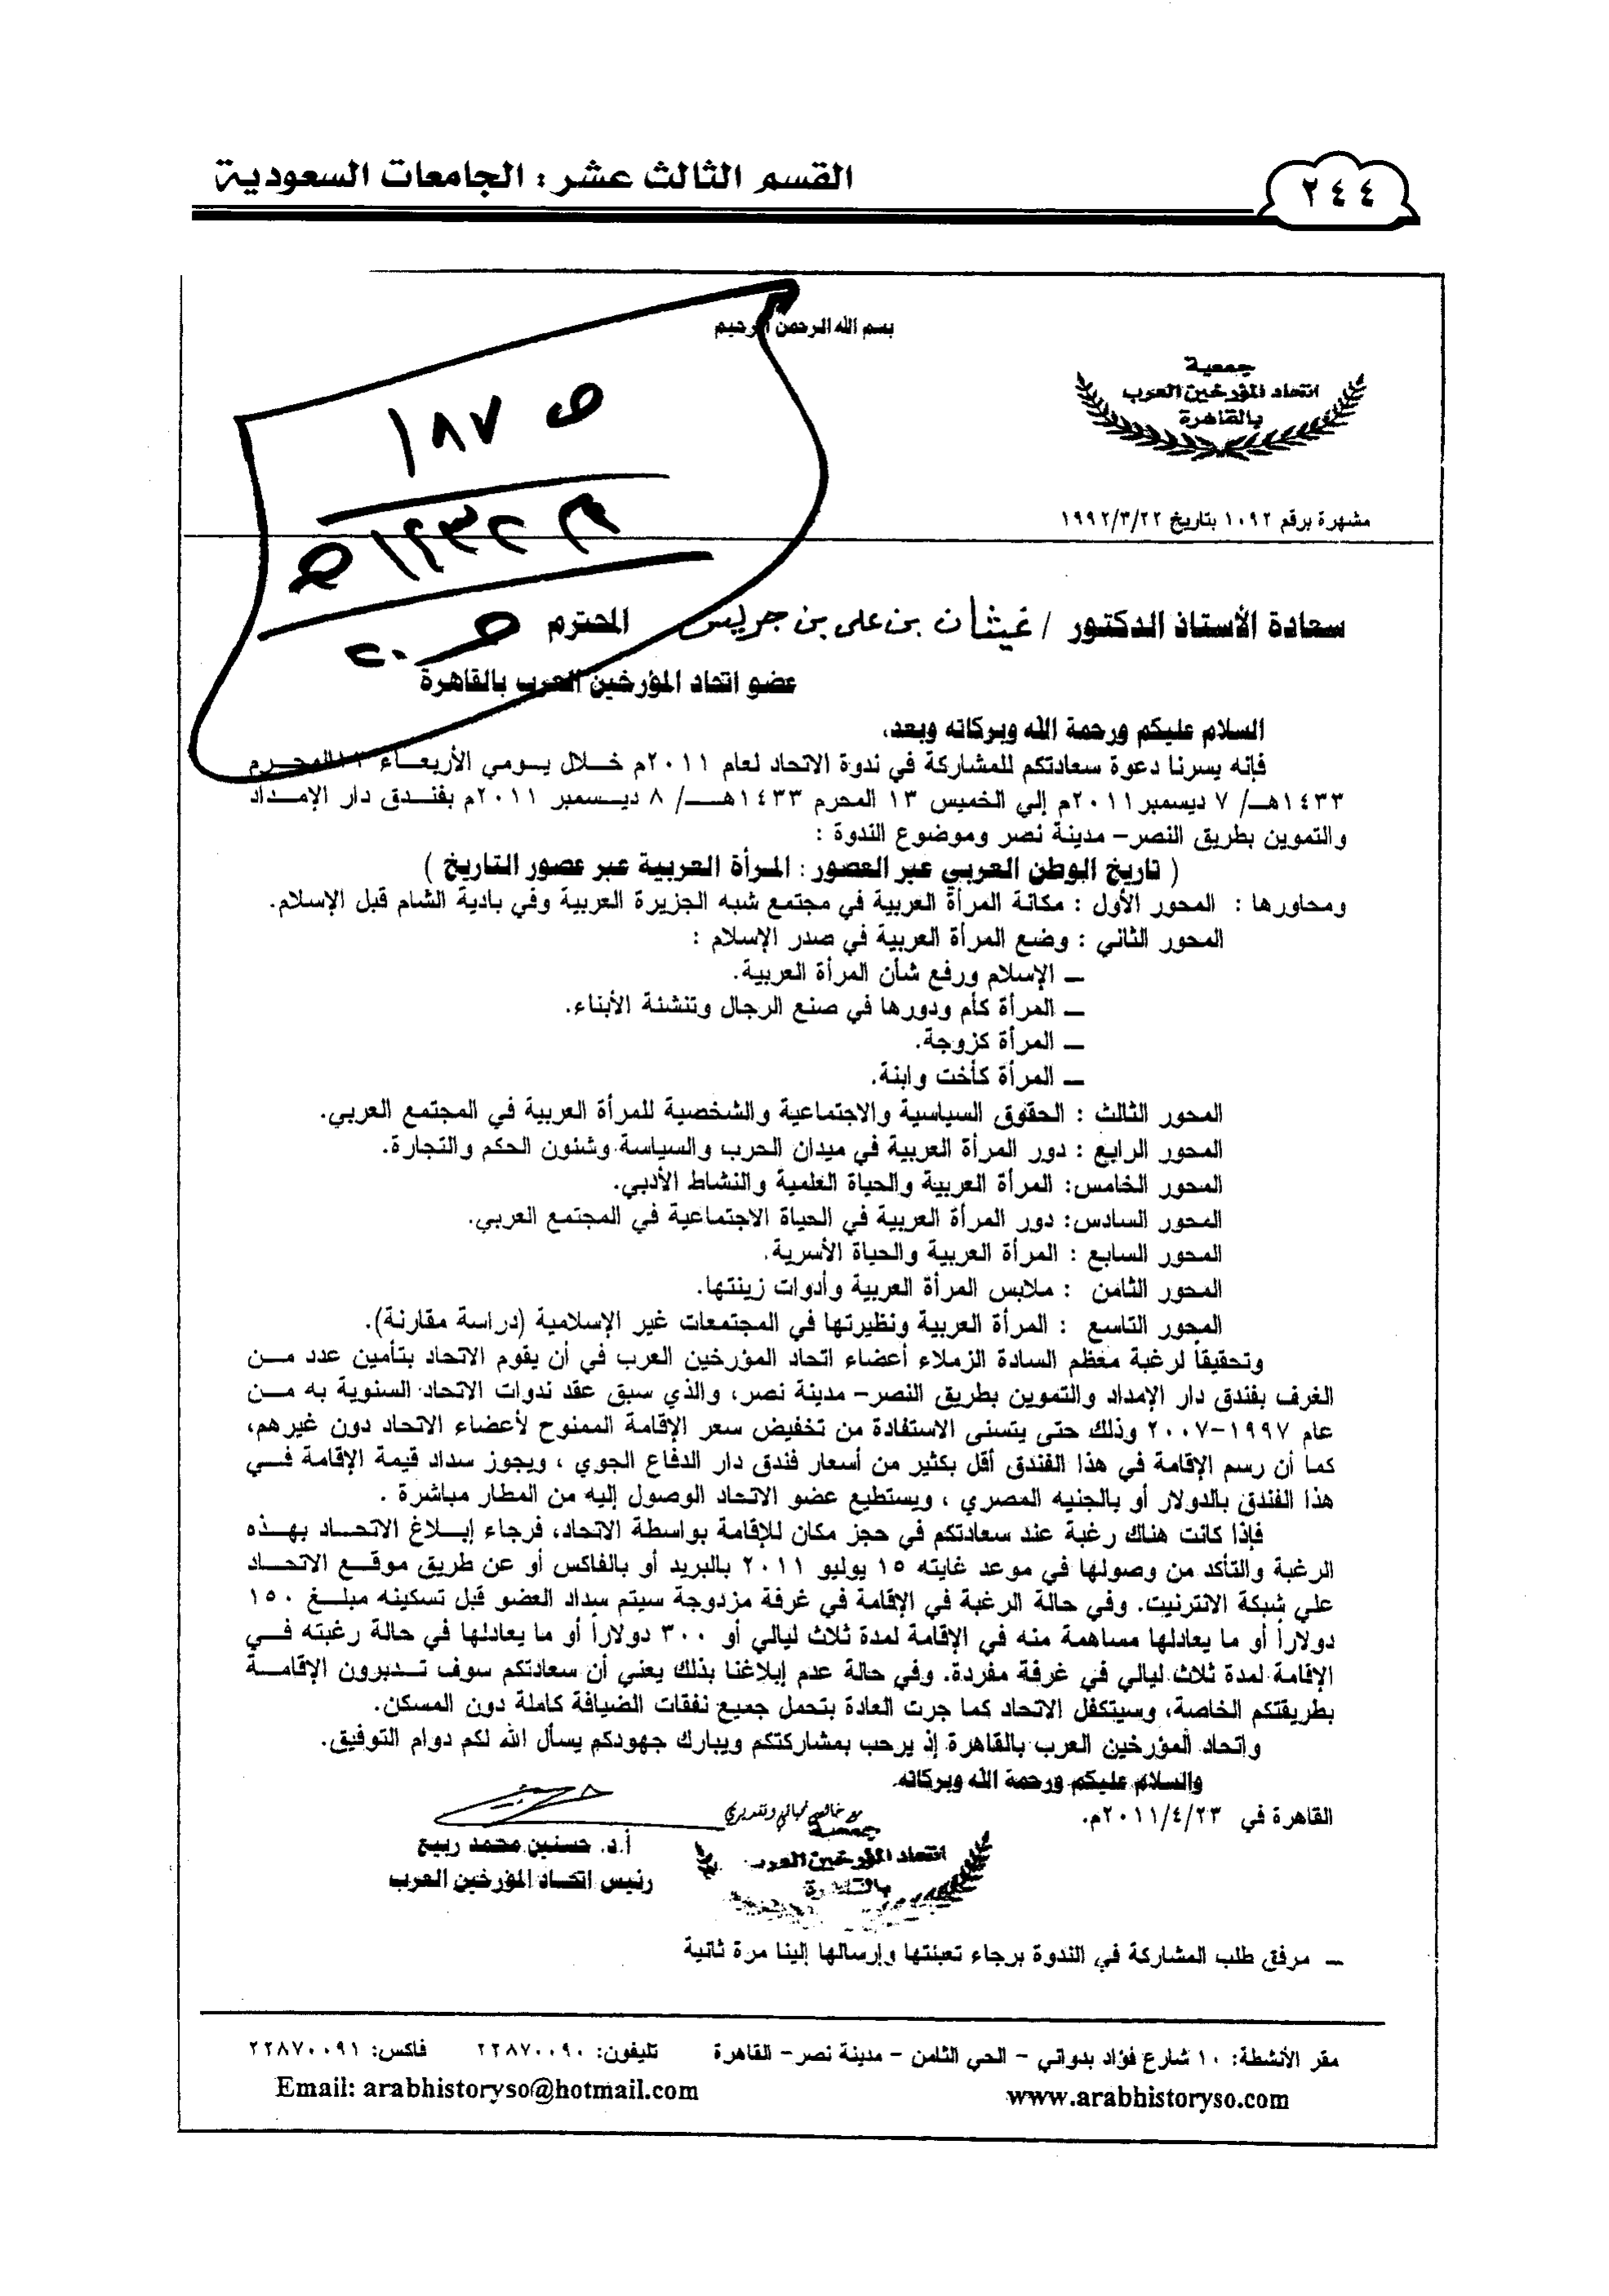 ٢٤٤
القسم الثالث عشر : الجامعات السعودية
بسم الله الرحمن الرحيم
جمعية
اتحاد المؤرخين العرب
بالقاهرة
مشهرة برقم ١٠٩٢ بتاريخ ١٩٩٢/٣/٢٢
ص ١٨٧
١٤٣٢
سعادة الأستاذ الدكتور / غيثان بن على بن جريس المحترم
عضو اتحاد المؤرخين العرب بالقاهرة
السلام عليكم ورحمة الله وبركاته وبعد،
فإنه يسرنا دعوة سعادتكم للمشاركة في ندوة الاتحاد لعام ٢٠١١م خلال يومي الأربعاء المحرم
١٤٣٣هـ/ ٧ ديسمبر ٢٠١١م إلي الخميس ١٣ المحرم ١٤٣٣هـ/ ٨ ديسمبر ٢٠١١م بفندق دار الإمداد
والتموين بطريق النصر– مدينة نصر وموضوع الندوة :
( تاريخ الوطن العربي عبر العصور : المرأة العربية عبر عصور التاريخ )
ومحاورها : المحور الأول : مكانة المرأة العربية في مجتمع شبه الجزيرة العربية وفي بادية الشام قبل الإسلام.
المحور الثاني : وضع المرأة العربية في صدر الإسلام :
– الإسلام ورفع شأن المرأة العربية.
– المرأة كأم ودورها في صنع الرجال وتنشئة الأبناء.
– المرأة كزوجة.
– المرأة كأخت وابنة.
المحور الثالث : الحقوق السياسية والاجتماعية والشخصية للمرأة العربية في المجتمع العربي.
المحور الرابع : دور المرأة العربية في ميدان الحرب والسياسة وشئون الحكم والتجارة.
المحور الخامس: المرأة العربية والحياة العلمية والنشاط الأدبي.
المحور السادس: دور المرأة العربية في الحياة الاجتماعية في المجتمع العربي.
المحور السابع : المرأة العربية والحياة الأسرية.
المحور الثامن : ملابس المرأة العربية وأدوات زينتها.
المحور التاسع : المرأة العربية ونظيرتها في المجتمعات غير الإسلامية (دراسة مقارنة).
وتحقيقاً لرغبة معظم السادة الزملاء أعضاء اتحاد المؤرخين العرب في أن يقوم الاتحاد بتأمين عدد من
الغرف بفندق دار الإمداد والتموين بطريق النصر– مدينة نصر، والذي سبق عقد ندوات الاتحاد السنوية به من
عام ١٩٩٧–٢٠٠٧ وذلك حتى يتسنى الاستفادة من تخفيض سعر الإقامة الممنوح لأعضاء الاتحاد دون غيرهم،
كما أن رسم الإقامة في هذا الفندق أقل بكثير من أسعار فندق دار الدفاع الجوي ، ويجوز سداد قيمة الإقامة في
هذا الفندق بالدولار أو بالجنيه المصري ، ويستطيع عضو الاتحاد الوصول إليه من المطار مباشرة .
فإذا كانت هناك رغبة عند سعادتكم في حجز مكان للإقامة بواسطة الاتحاد، فرجاء إبلاغ الاتحاد بهذه
الرغبة والتأكد من وصولها في موعد غايته ١٥ يوليو ٢٠١١ بالبريد أو بالفاكس أو عن طريق موقع الاتحاد
علي شبكة الانترنيت. وفي حالة الرغبة في الإقامة في غرفة مزدوجة سيتم سداد العضو قبل تسكينه مبلغ ١٥٠
دولاراً أو ما يعادلها مساهمة منه في الإقامة لمدة ثلاث ليالي أو ٣٠٠ دولاراً أو ما يعادلها في حالة رغبته في
الإقامة لمدة ثلاث ليالي في غرفة مفردة. وفي حالة عدم إبلاغنا بذلك يعني أن سعادتكم سوف تدبرون الإقامة
بطريقتكم الخاصة، وسيتكفل الاتحاد كما جرت العادة بتحمل جميع نفقات الضيافة كاملة دون المسكن.
واتحاد المؤرخين العرب بالقاهرة إذ يرحب بمشاركتكم ويبارك جهودكم يسأل الله لكم دوام التوفيق.
والسلام عليكم ورحمة الله وبركاته.
القاهرة في ٢٠١١/٤/٢٣م.
مع خالص تحياتي وتقديري
أ.د. حسنين محمد ربيع
رئيس اتحاد المؤرخين العرب
جمعية
اتحاد المؤرخين العرب
بالقاهرة
– مرفق طلب المشاركة في الندوة برجاء تعبئتها وإرسالها إلينا مرة ثانية
مقر الأنشطة: ١٠ شارع فؤاد بدواني – الحي الثامن – مدينة نصر– القاهرة تليفون: ٢٢٨٧٠٠٩٠ فاكس: ٢٢٨٧٠٠٩١
www.arabhistoryso.com Email: arabhistoryso@hotmail.com